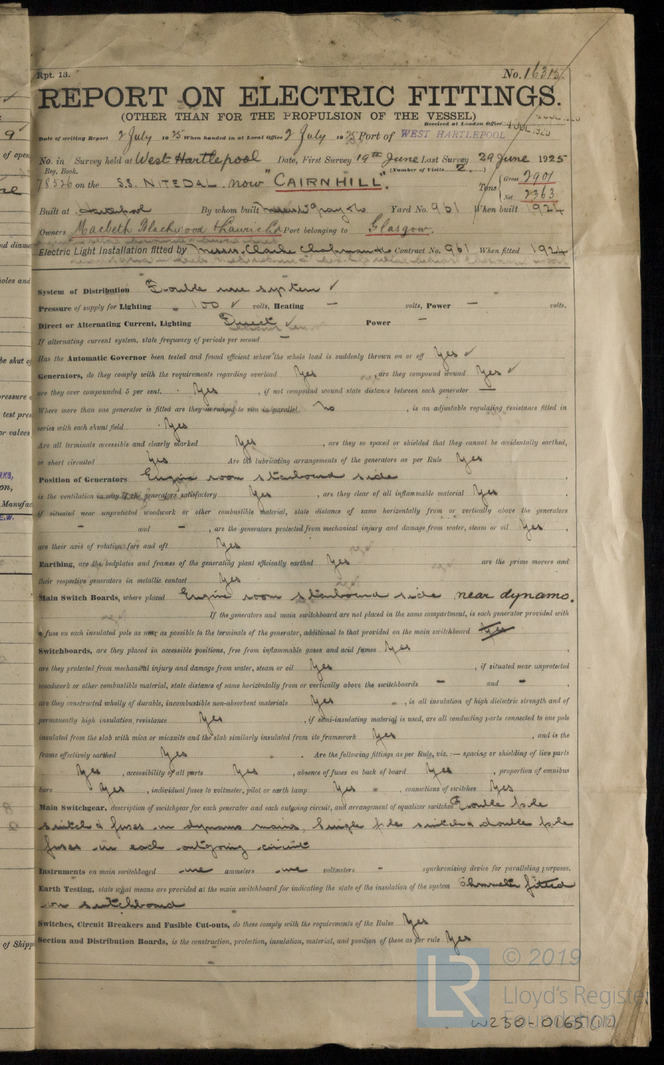 Rpt. 13.
No. 16315
REPORT ON ELECTRIC FITTINGS.
(OTHER THAN FOR THE PROPULSION OF THE VESSEL)
Received at London Office
Date of writing Report 2 July 1925 When handed in at Local Office 2 July 1925 Port of WEST HARTLEPOOL
No. in Survey held at West Hartlepool Date, First Survey 19th June Last Survey 29 June 1925
Reg. Book. (Number of Visits 2)
78526 on the S.S. NITEDAL now "CAIRNHILL". Tons { Gross 2901 Net 2363
Built at By whom built Gray & Co Yard No. 961 When built 1924
Owners Macbeth Port belonging to Glasgow.
Electric Light Installation fitted by Messrs. Clarke Chapman Contract No. 961 When fitted 1924
System of Distribution Double wire system ✓
Pressure of supply for Lighting 100 ✓ volts, Heating – volts, Power – volts.
Direct or Alternating Current, Lighting Direct ✓ Power –
If alternating current system, state frequency of periods per second –
Has the Automatic Governor been tested and found efficient when the whole load is suddenly thrown on or off Yes ✓
Generators, do they comply with the requirements regarding overload Yes , are they compound wound Yes ✓
are they over compounded 5 per cent. Yes , if not compound wound state distance between each generator –
Where more than one generator is fitted are they arranged to run in parallel no , is an adjustable regulating resistance fitted in
series with each shunt field Yes
Are all terminals accessible and clearly marked Yes , are they so spaced or shielded that they cannot be accidentally earthed,
or short circuited Yes Are the lubricating arrangements of the generators as per Rule Yes
Position of Generators Engine room starboard side
is the ventilation in way of the generators satisfactory Yes , are they clear of all inflammable material Yes ,
if situated near unprotected woodwork or other combustible material, state distance of same horizontally from or vertically above the generators
– and – , are the generators protected from mechanical injury and damage from water, steam or oil Yes ,
are their axis of rotation fore and aft Yes
Earthing, are the bedplates and frames of the generating plant efficiently earthed Yes are the prime movers and
their respective generators in metallic contact Yes
Main Switch Boards, where placed Engine room starboard side near dynamo.
If the generators and main switchboard are not placed in the same compartment, is each generator provided with
a fuse on each insulated pole as near as possible to the terminals of the generator, additional to that provided on the main switchboard Yes
Switchboards, are they placed in accessible positions, free from inflammable gases and acid fumes Yes ,
are they protected from mechanical injury and damage from water, steam or oil Yes , if situated near unprotected
woodwork or other combustible material, state distance of same horizontally from or vertically above the switchboards – and – ,
are they constructed wholly of durable, incombustible non-absorbent materials Yes , is all insulation of high dielectric strength and of
permanently high insulation resistance Yes , if semi-insulating material is used, are all conducting parts connected to one pole
insulated from the slab with mica or micanite and the slab similarly insulated from its framework Yes , and is the
frame effectively earthed Yes . Are the following fittings as per Rule, viz.:— spacing or shielding of live parts
Yes , accessibility of all parts Yes , absence of fuses on back of board Yes , proportion of omnibus
bars Yes , individual fuses to voltmeter, pilot or earth lamp Yes , connections of switches Yes
Main Switchgear, description of switchgear for each generator and each outgoing circuit, and arrangement of equalizer switches Double pole
switch & fuses in dynamo mains, Single pole switch & double pole
fuses in each outgoing circuit
Instruments on main switchboard one ammeters one voltmeters – synchronising device for paralleling purposes.
Earth Testing, state what means are provided at the main switchboard for indicating the state of the insulation of the system Ohmmeter fitted
on switchboard
Switches, Circuit Breakers and Fusible Cut-outs, do these comply with the requirements of the Rules Yes
Section and Distribution Boards, is the construction, protection, insulation, material, and position of these as per rule Yes
© 2019
LR
Lloyd's Register
Foundation
W230-0165(1/2)